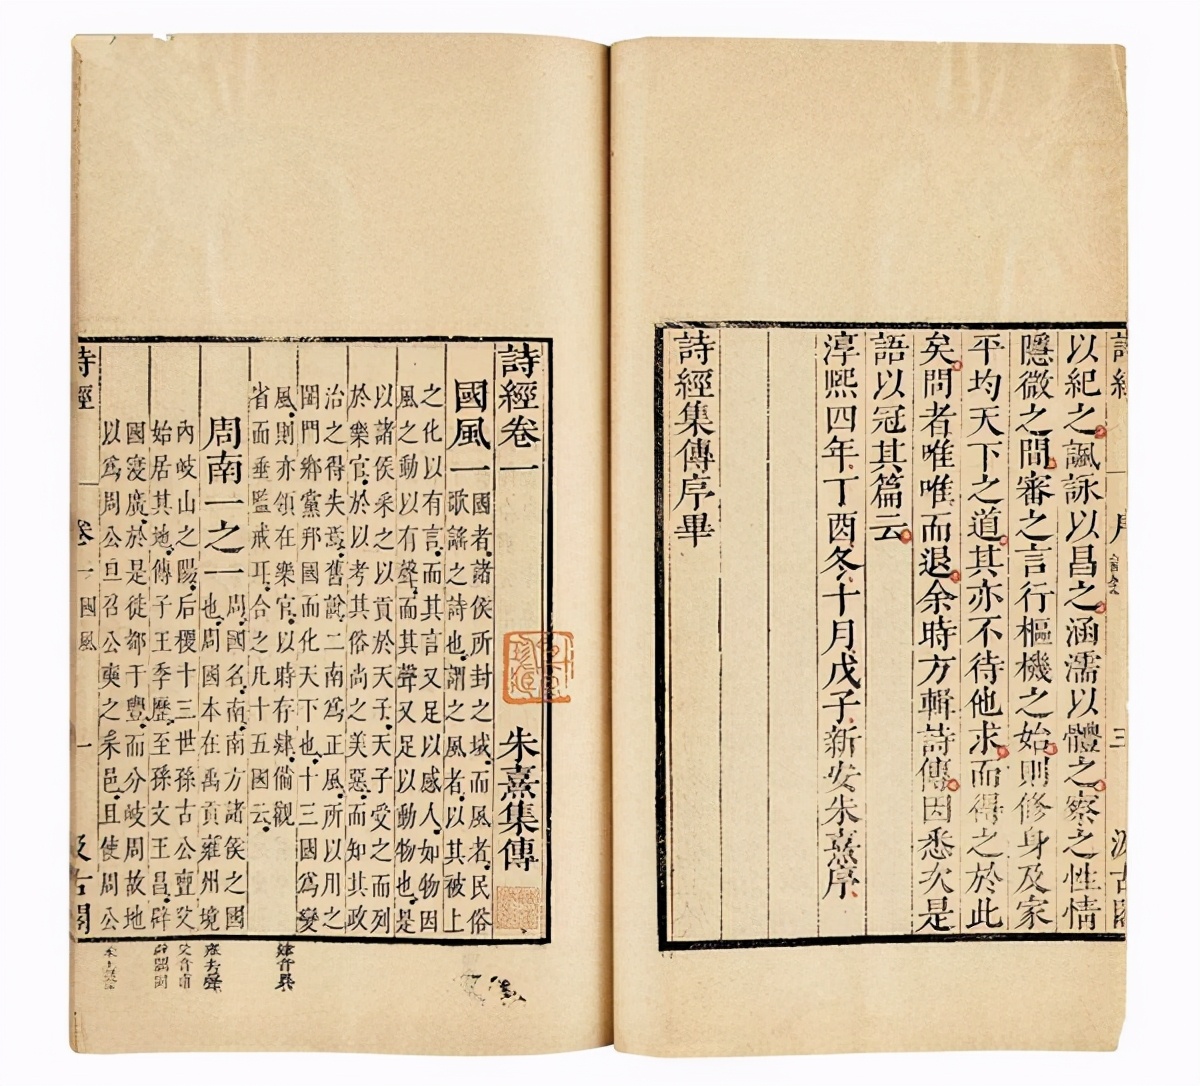 以紀之諷詠以昌之涵濡以體之察之性情
隱微之間審之言行樞機之始則修身及家
平均天下之道其亦不待他求而得之於此
矣問者唯唯而退余時方輯詩傳因悉次是
語以冠其篇云
淳熙四年丁酉冬十月戊子新安朱熹序
詩經集傳序畢
詩經卷一 朱熹集傳
國風一
國者諸侯所封之域而風者民俗
歌謠之詩也謂之風者以其被上
之化以有言而其言又足以感人如物因
風之動以有聲而其聲又足以動物也是
以諸侯采之以貢於天子天子受之而列
於樂官於以考其俗尚之美惡而知其政
治之得失焉舊說二南爲正風所以用之
閨門鄉黨邦國而化天下也十三國爲變
風則亦領在樂官以時存肄備觀
省而垂監戒耳合之凡十五國云
肄音異
周南一之一
周國名南南方諸侯之國
也周國本在禹貢雍州境
雍去聲
內岐山之陽后稷十三世孫古公亶父
父音甫
始居其地傳子王季歷至孫文王昌辟
國寖廣於是徙都于豐而分岐周故地
以爲周公旦召公奭之采邑且使周公
詩經
卷一
國風
一
汲古閣